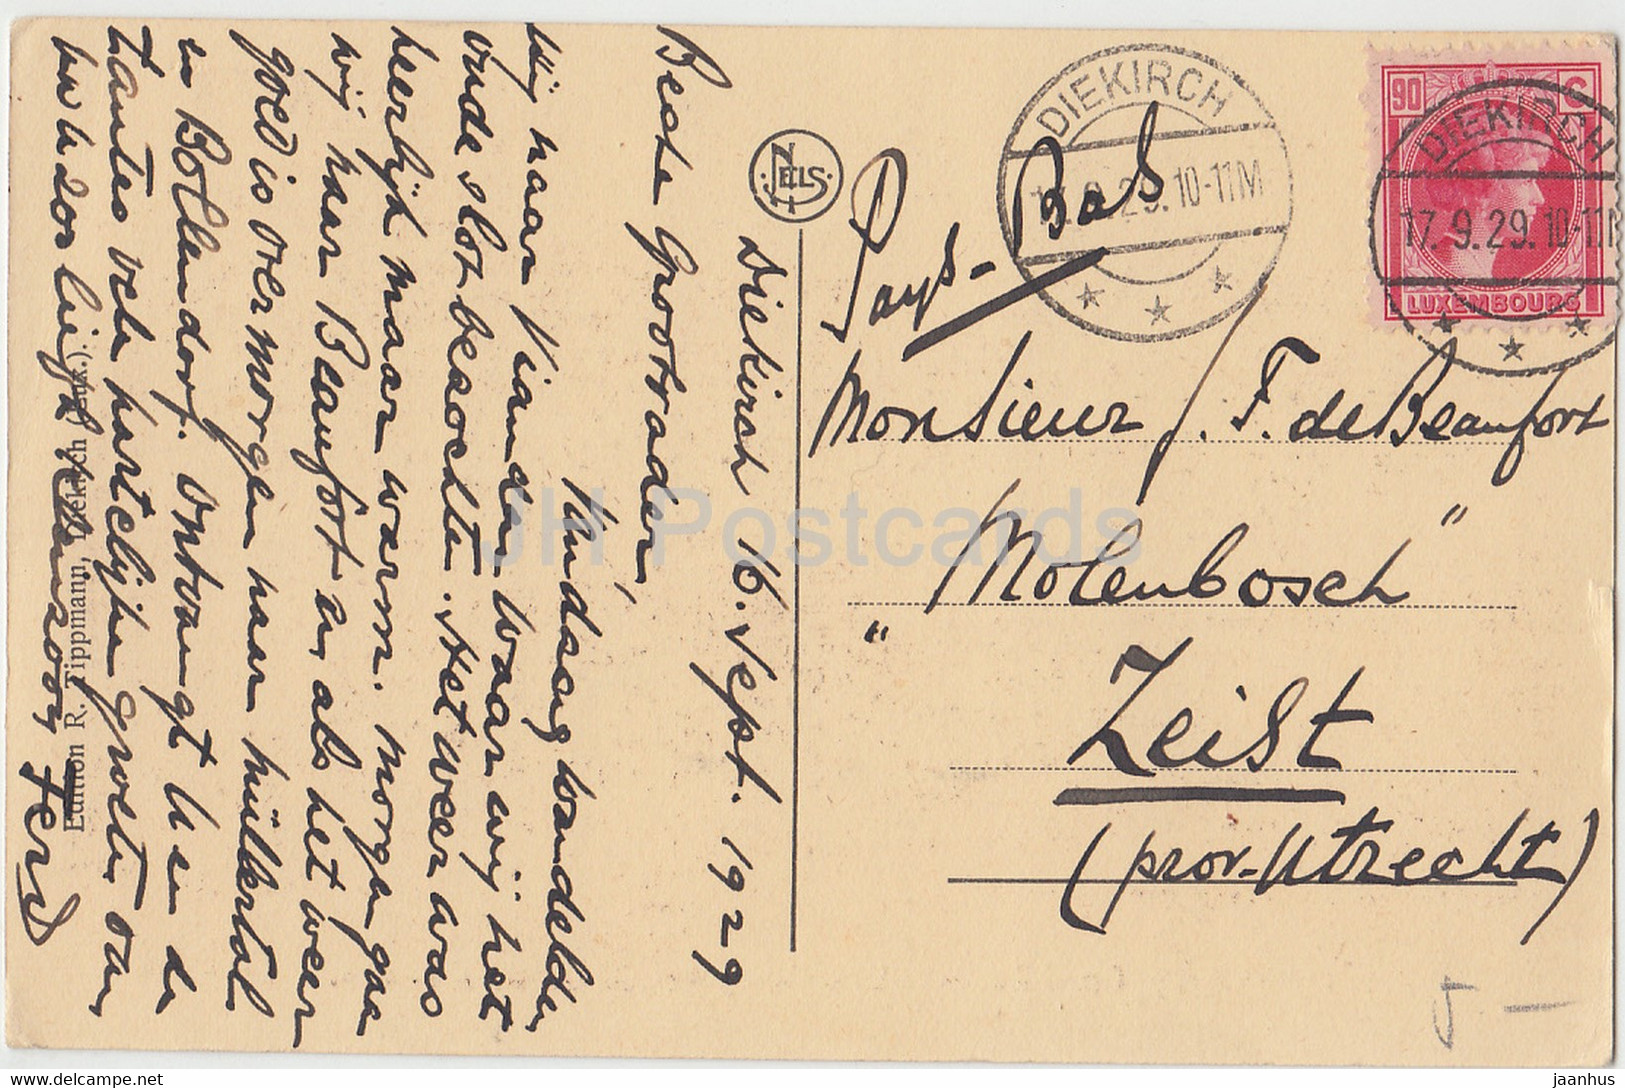 Diekirch 16. Sept. 1929
Beste Grootvader,
Vandaag wandelden
wij naar Vianden waar wij het
oude slot bezochten. Het weer was
heerlijk maar warm. Morgen gaan
wij naar Beaufort en, als het weer
goed is overmorgen naar Müllertal
en Bollendorf. Ontvangt U en de
tantes vele hartelijke groeten van
Uw kleinzoon
Ferd
Edition R. Tippmann, Diekirch (Lux.)
NELS
DIEKIRCH
17.9.29.10-11M
90 C
LUXEMBOURG
DIEKIRCH
17.9.29.10-11M
Pays-Bas
Monsieur F. de Beaufort
"Molenbosch"
Zeist
(prov. Utrecht)
5 -
JH Postcards
www.delcampe.net
jaanhus